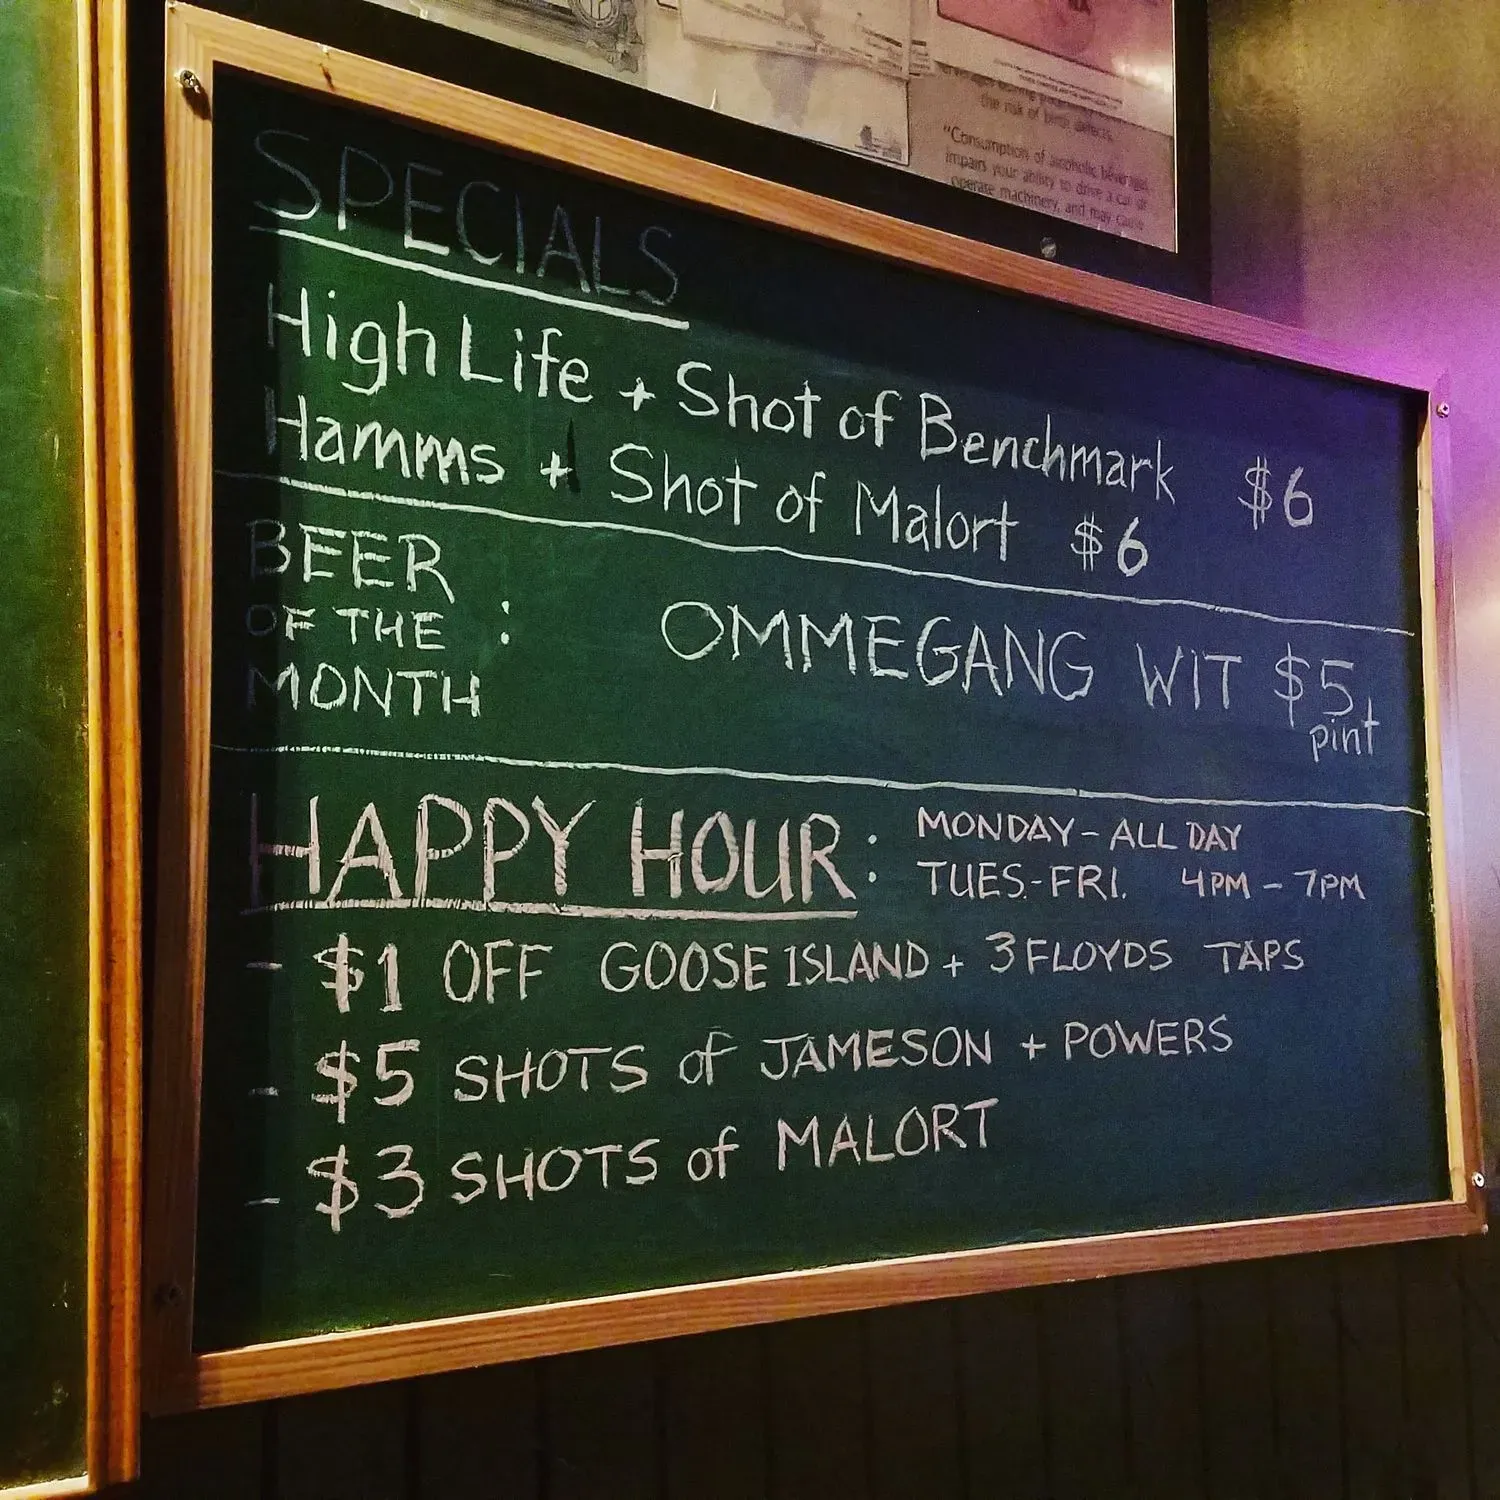 the risk of birth defects.
"Consumption of alcoholic beverages
impairs your ability to drive a car or
operate machinery, and may cause
SPECIALS
High Life + Shot of Benchmark $6
Hamms + Shot of Malort $6
BEER
OF THE :
MONTH
OMMEGANG WIT $5
pint
HAPPY HOUR: MONDAY - ALL DAY
TUES.-FRI. 4PM - 7PM
- $1 OFF GOOSE ISLAND + 3 FLOYDS TAPS
- $5 SHOTS of JAMESON + POWERS
- $3 SHOTS of MALORT